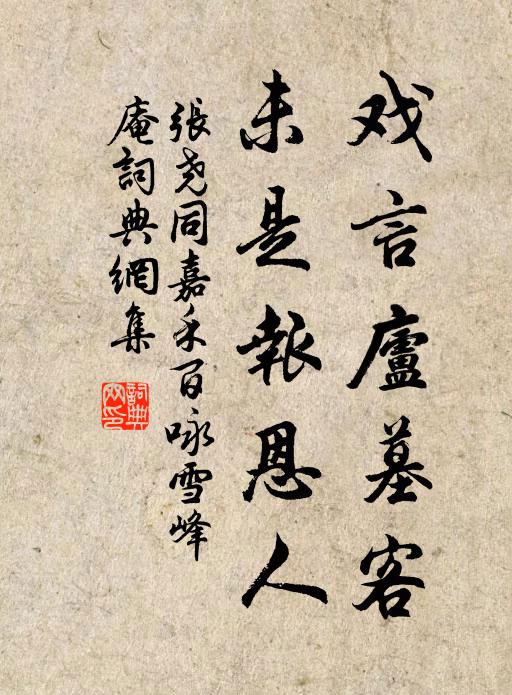 戏言廬墓客
未是報恩人
張尧同嘉禾百咏雪峰
庵詞典網集
詞典
网印